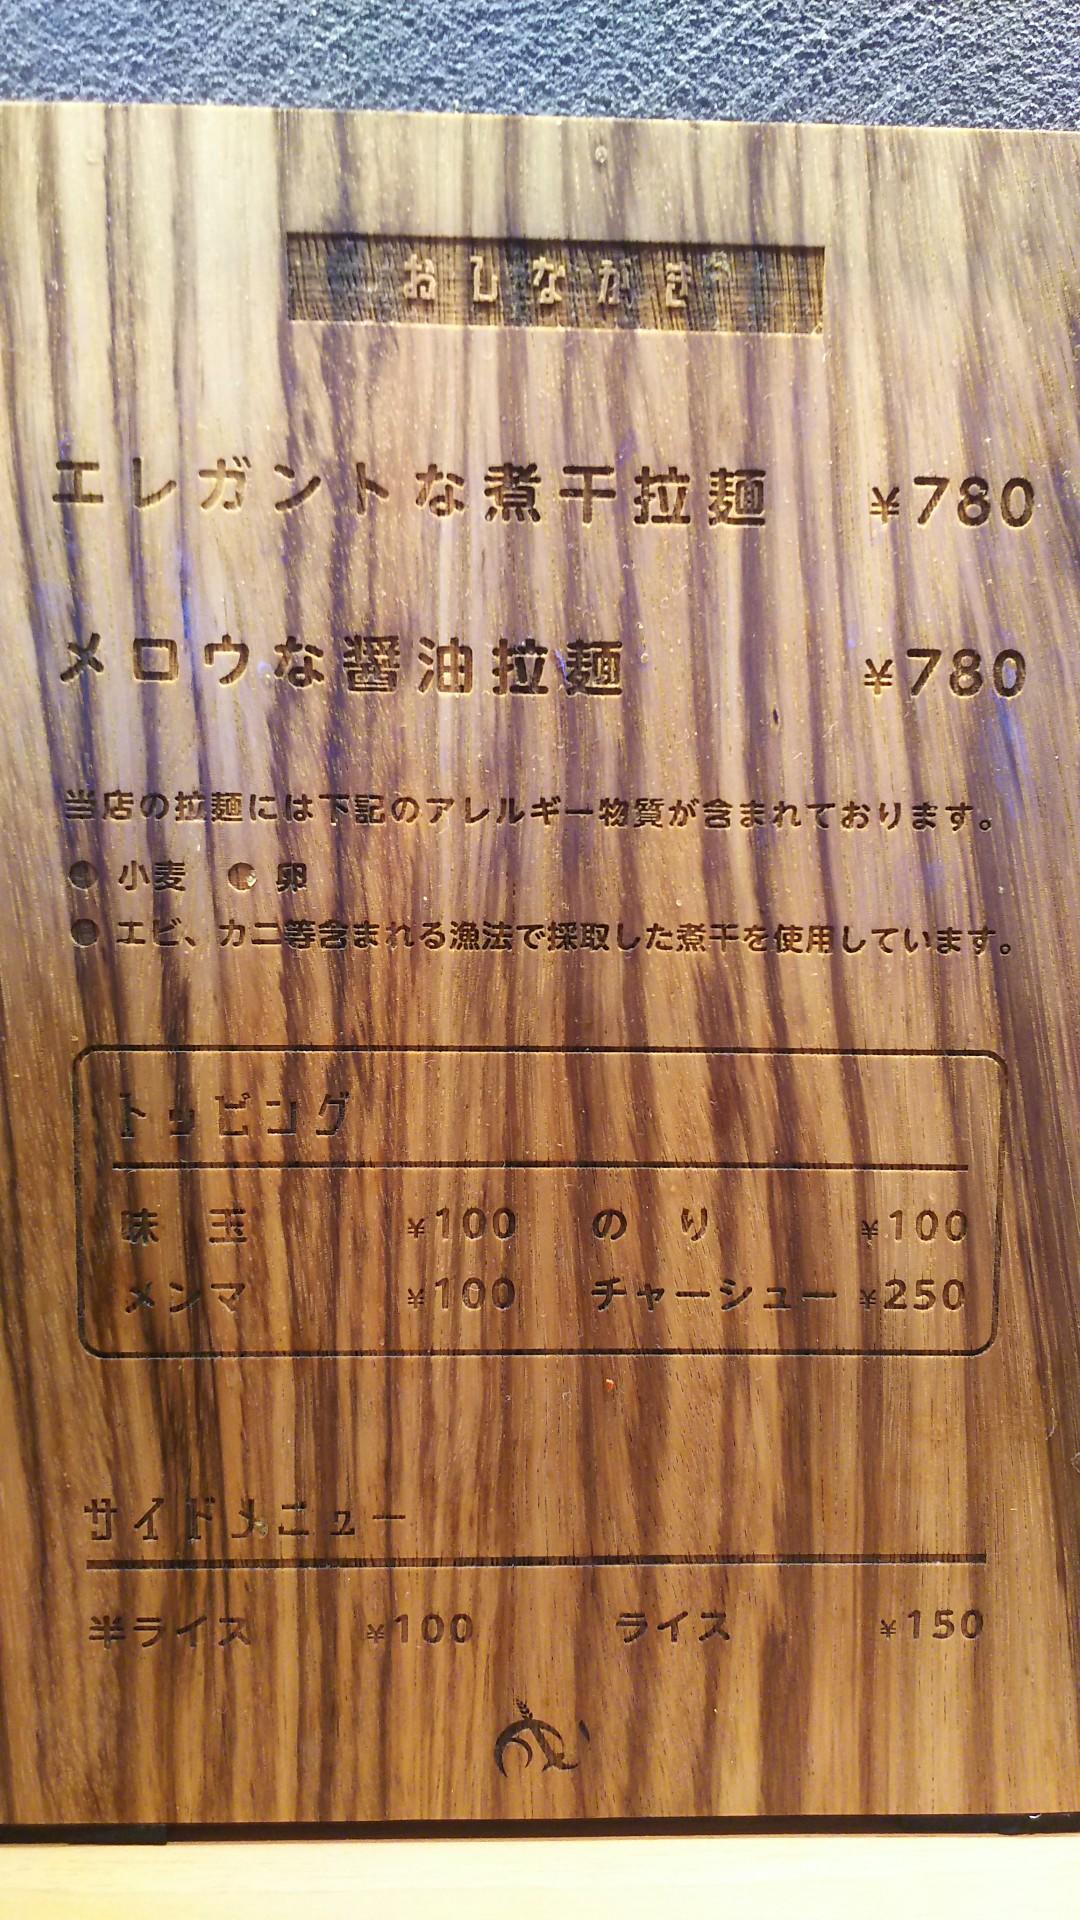 おしながき
エレガントな煮干拉麺 ¥780
メロウな醤油拉麺 ¥780
当店の拉麺には下記のアレルギー物質が含まれております。
● 小麦 ● 卵
● エビ、カニ等含まれる漁法で採取した煮干を使用しています。
トッピング
味玉 ¥100 のり ¥100
メンマ ¥100 チャーシュー ¥250
サイドメニュー
半ライス ¥100 ライス ¥150